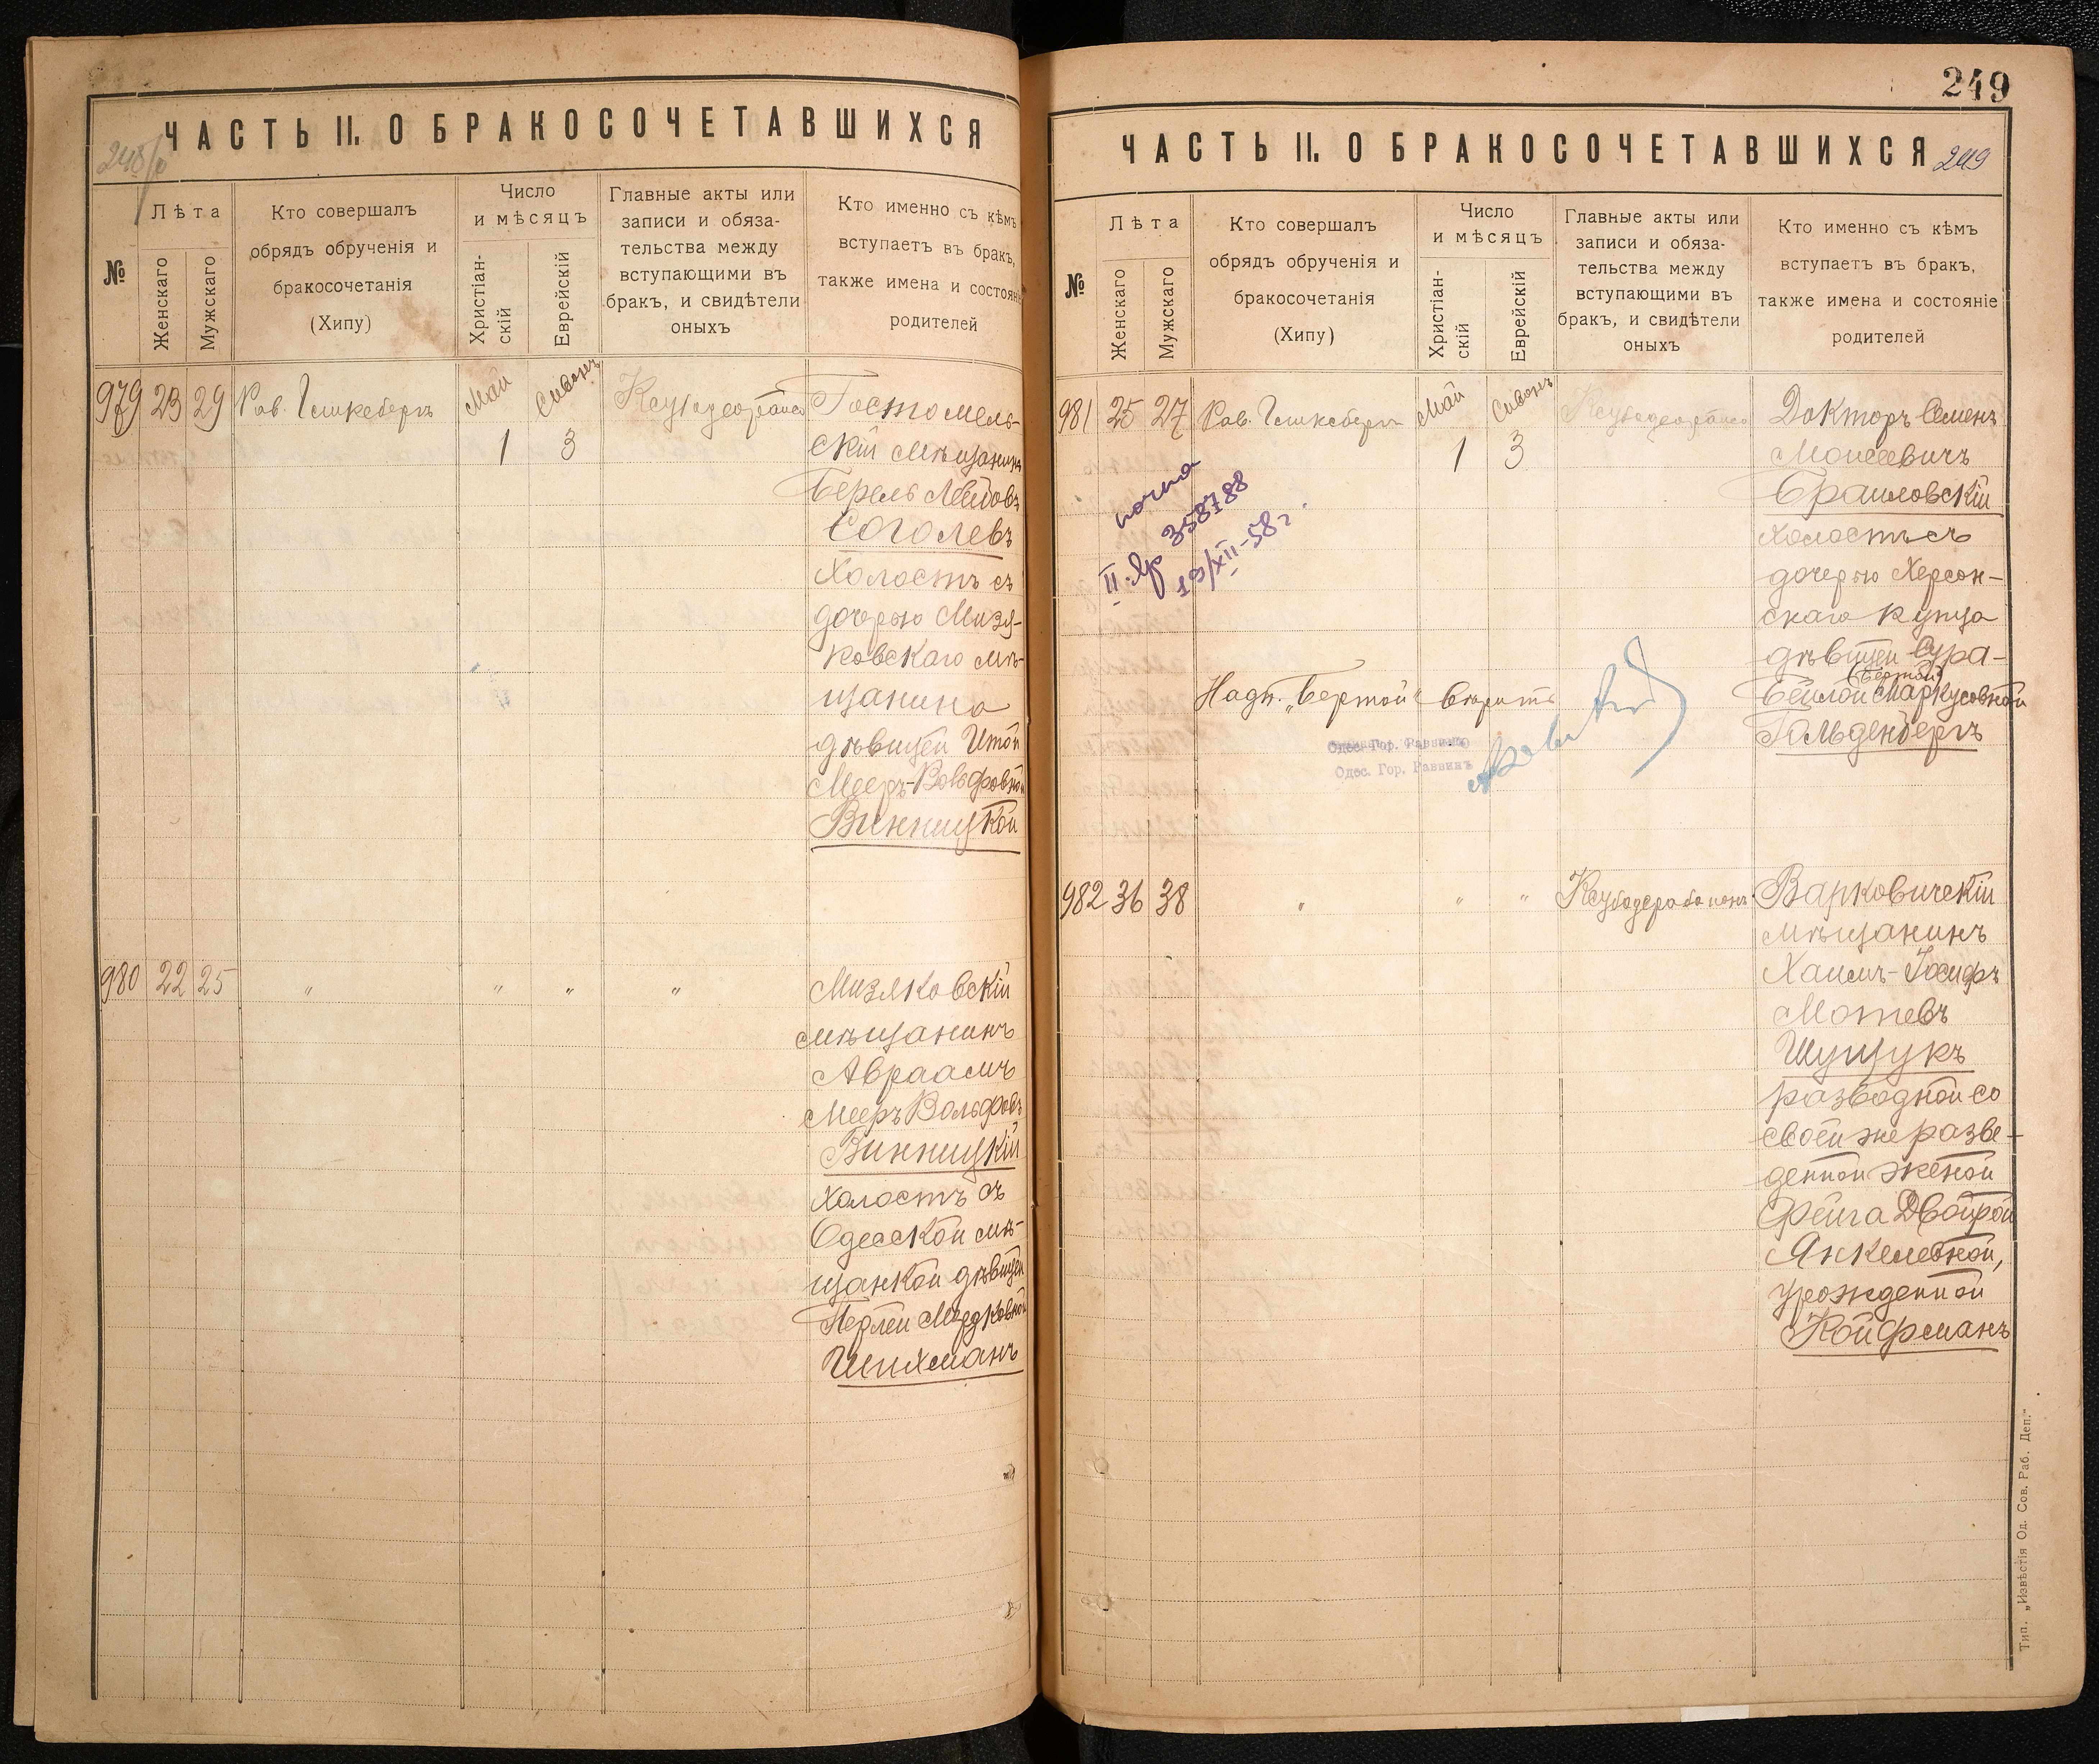 ЧАСТЬ II. О БРАКОСОЧЕТАВШИХСЯ
№
Лѣта
Женскаго
Мужскаго
Кто совершалъ
обрядъ обрученія и
бракосочетанія
(Хипу)
Число
и мѣсяцъ
Христіан-
скій
Еврейскій
Главные акты или
записи и обяза-
тельства между
вступающими въ
бракъ, и свидѣтели
оныхъ
Кто именно съ кѣмъ
вступаетъ въ бракъ,
также имена и состояні
родителей
979 23 29
Май
Сиванъ
1 3
Гостомель-
скій мѣщанинъ
Берель Лейбовъ
Соголевъ
холостъ съ
дочерью Мизя-
ковскаго мѣ-
щанина
дѣвицей Итой
Мееръ-Вольфовной
Винницкой
980 22 25 " " " "
Мизяковскій
мѣщанинъ
Авраамъ
Мееръ Вольфовъ
Винницкій
холостъ съ
Одесской мѣ-
щанкой дѣвицей
Перлей Мордковной
Шихманъ
249
ЧАСТЬ II. О БРАКОСОЧЕТАВШИХСЯ 249
№
Лѣта
Женскаго
Мужскаго
Кто совершалъ
обрядъ обрученія и
бракосочетанія
(Хипу)
Число
и мѣсяцъ
Христіан-
скій
Еврейскій
Главные акты или
записи и обяза-
тельства между
вступающими въ
бракъ, и свидѣтели
оныхъ
Кто именно съ кѣмъ
вступаетъ въ бракъ,
также имена и состояніе
родителей
981 25 27
Май
Сиванъ
1 3
Докторъ Семенъ
Моисеевичъ
Браиловскій
холостъ съ
дочерью Херсон-
скаго купца
дѣвицей Сура-
(Бертой)
Бейлой Маркусовной
Гольденбергъ
358788
19/XII-58г.
Надп. „Бертой" вѣрить
Одес. Гор. Раввинъ
982 36 38 " " "
Варковичскій
мѣщанинъ
Хаимъ-Іосифъ
Мотевъ
Шущукъ
разводной со
своей же разве-
денной женой
Фейга Двойрой
Янкелевной,
урожденной
Койфманъ
Тип. „Извѣстія Од. Сов. Раб. Деп."